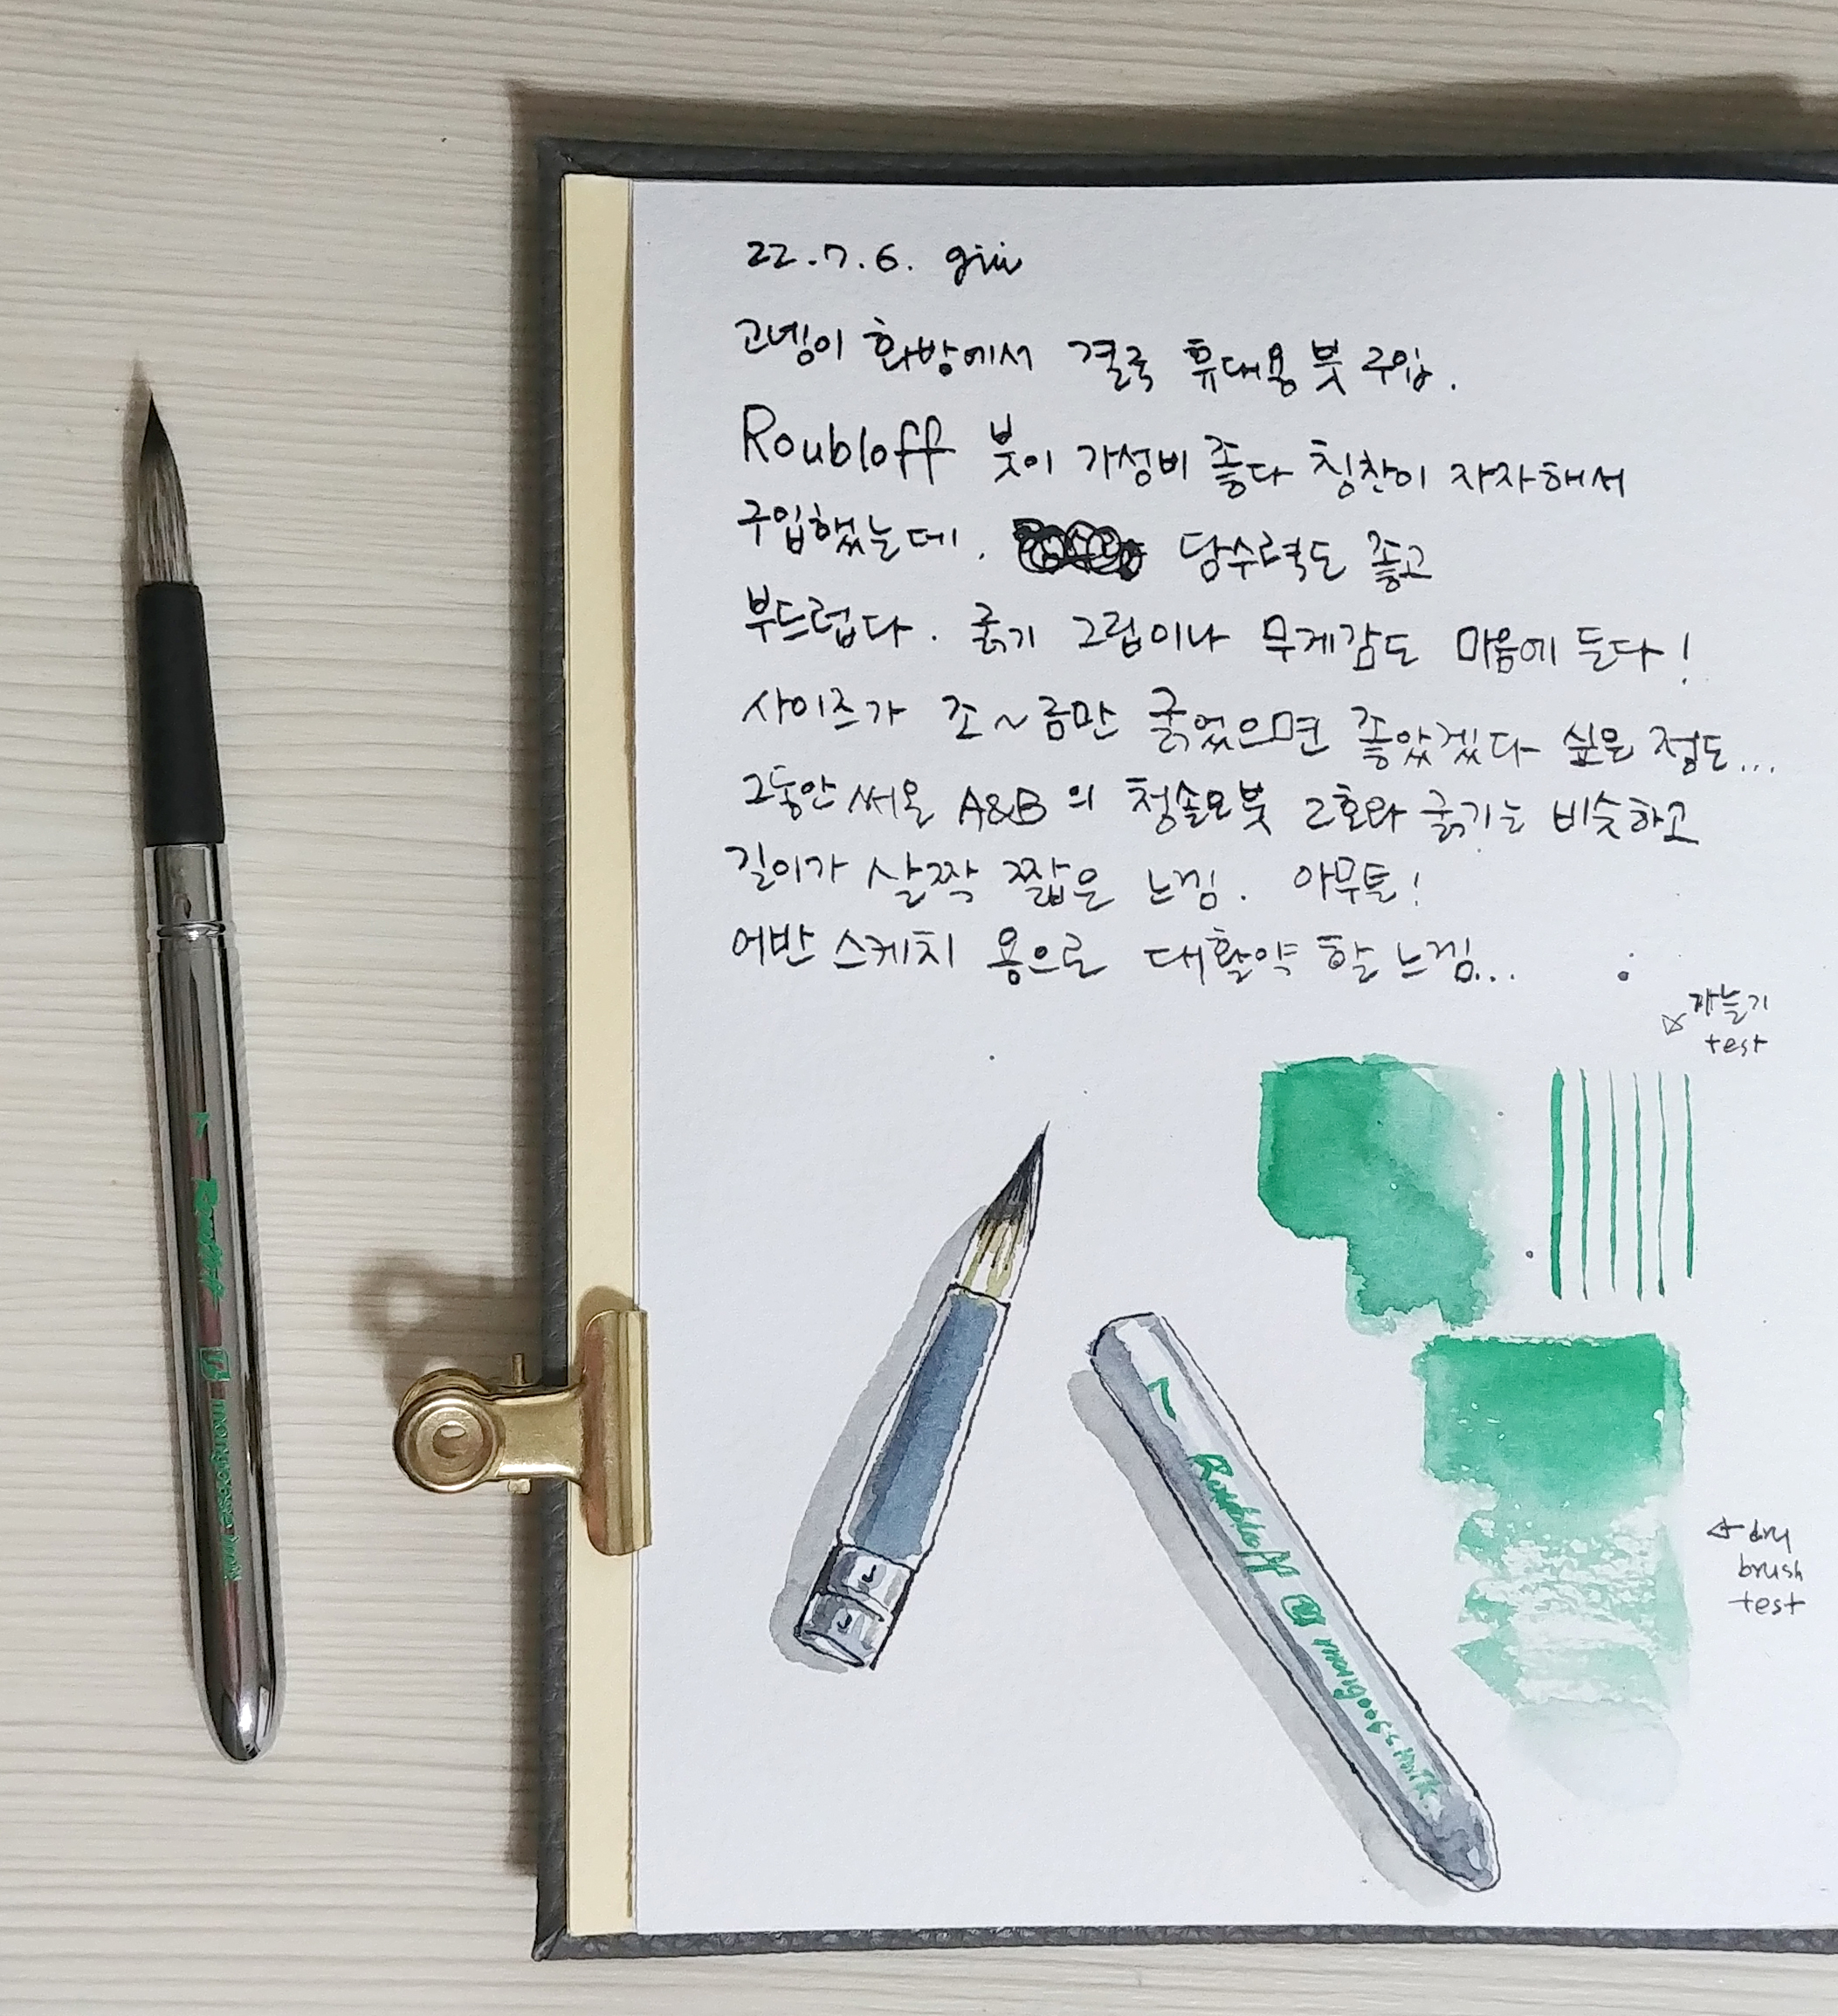 22.7.6. giii
고넹이 화방에서 결국 휴대용 붓 구입.
Roubloff 붓이 가성비 좋다 칭찬이 자자해서
구입했는데. 담수력도 좋고
부드럽다. 굵기 그립이나 무게감도 마음에 든다!
사이즈가 조~금만 굵었으면 좋았겠다 싶은 정도...
그동안 써온 A&B의 청솔모붓 2호와 굵기는 비슷하고
길이가 살짝 짧은 느낌. 아무튼!
어반 스케치 용으로 대활약 할 느낌...
가늘기
test
7 Roubloff mongoose imit
← dry
brush
test
7 Roubloff mongoose imit